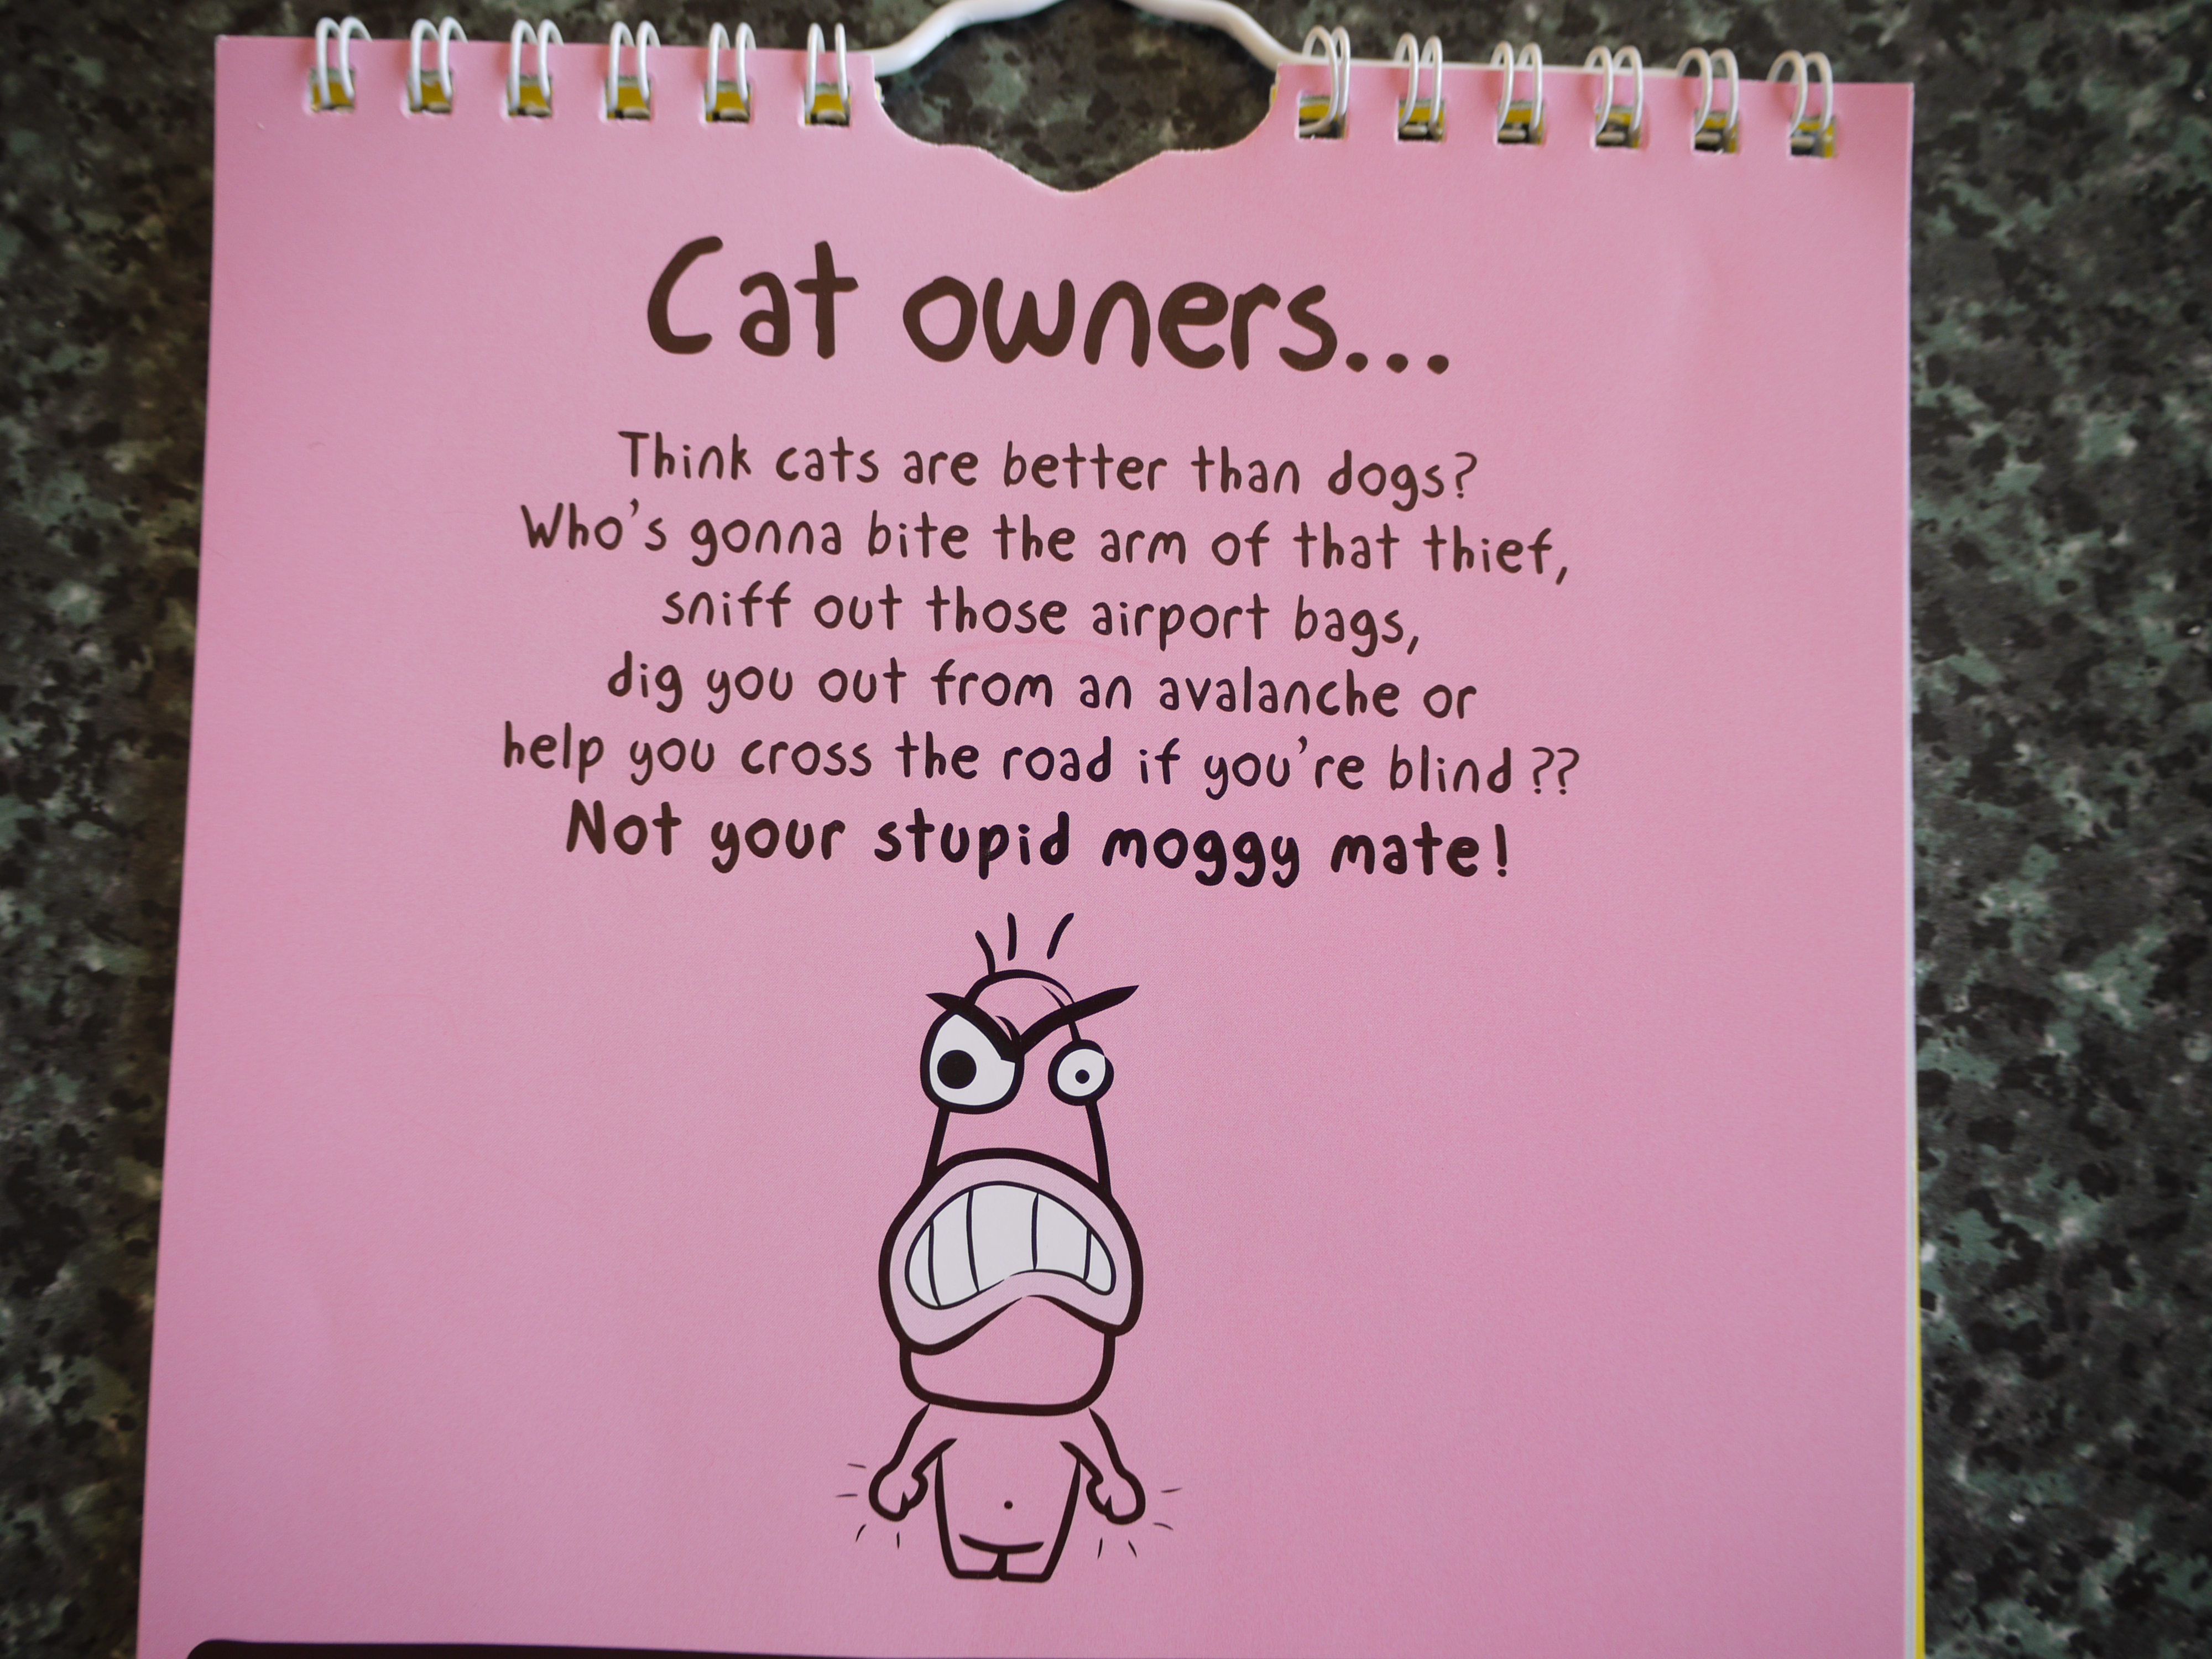 Cat owners...
Think cats are better than dogs?
Who's gonna bite the arm of that thief,
sniff out those airport bags,
dig you out from an avalanche or
help you cross the road if you're blind??
Not your stupid moggy mate!